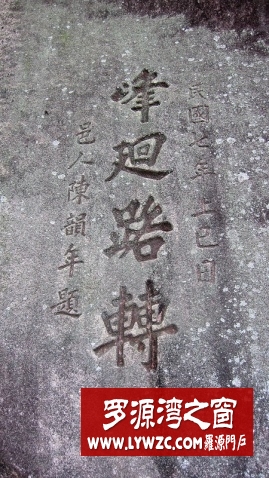 民國七年上巳日
峰廻路轉
邑人陳韻年題
罗源湾之窗
www.LYWZC.com羅源門戶